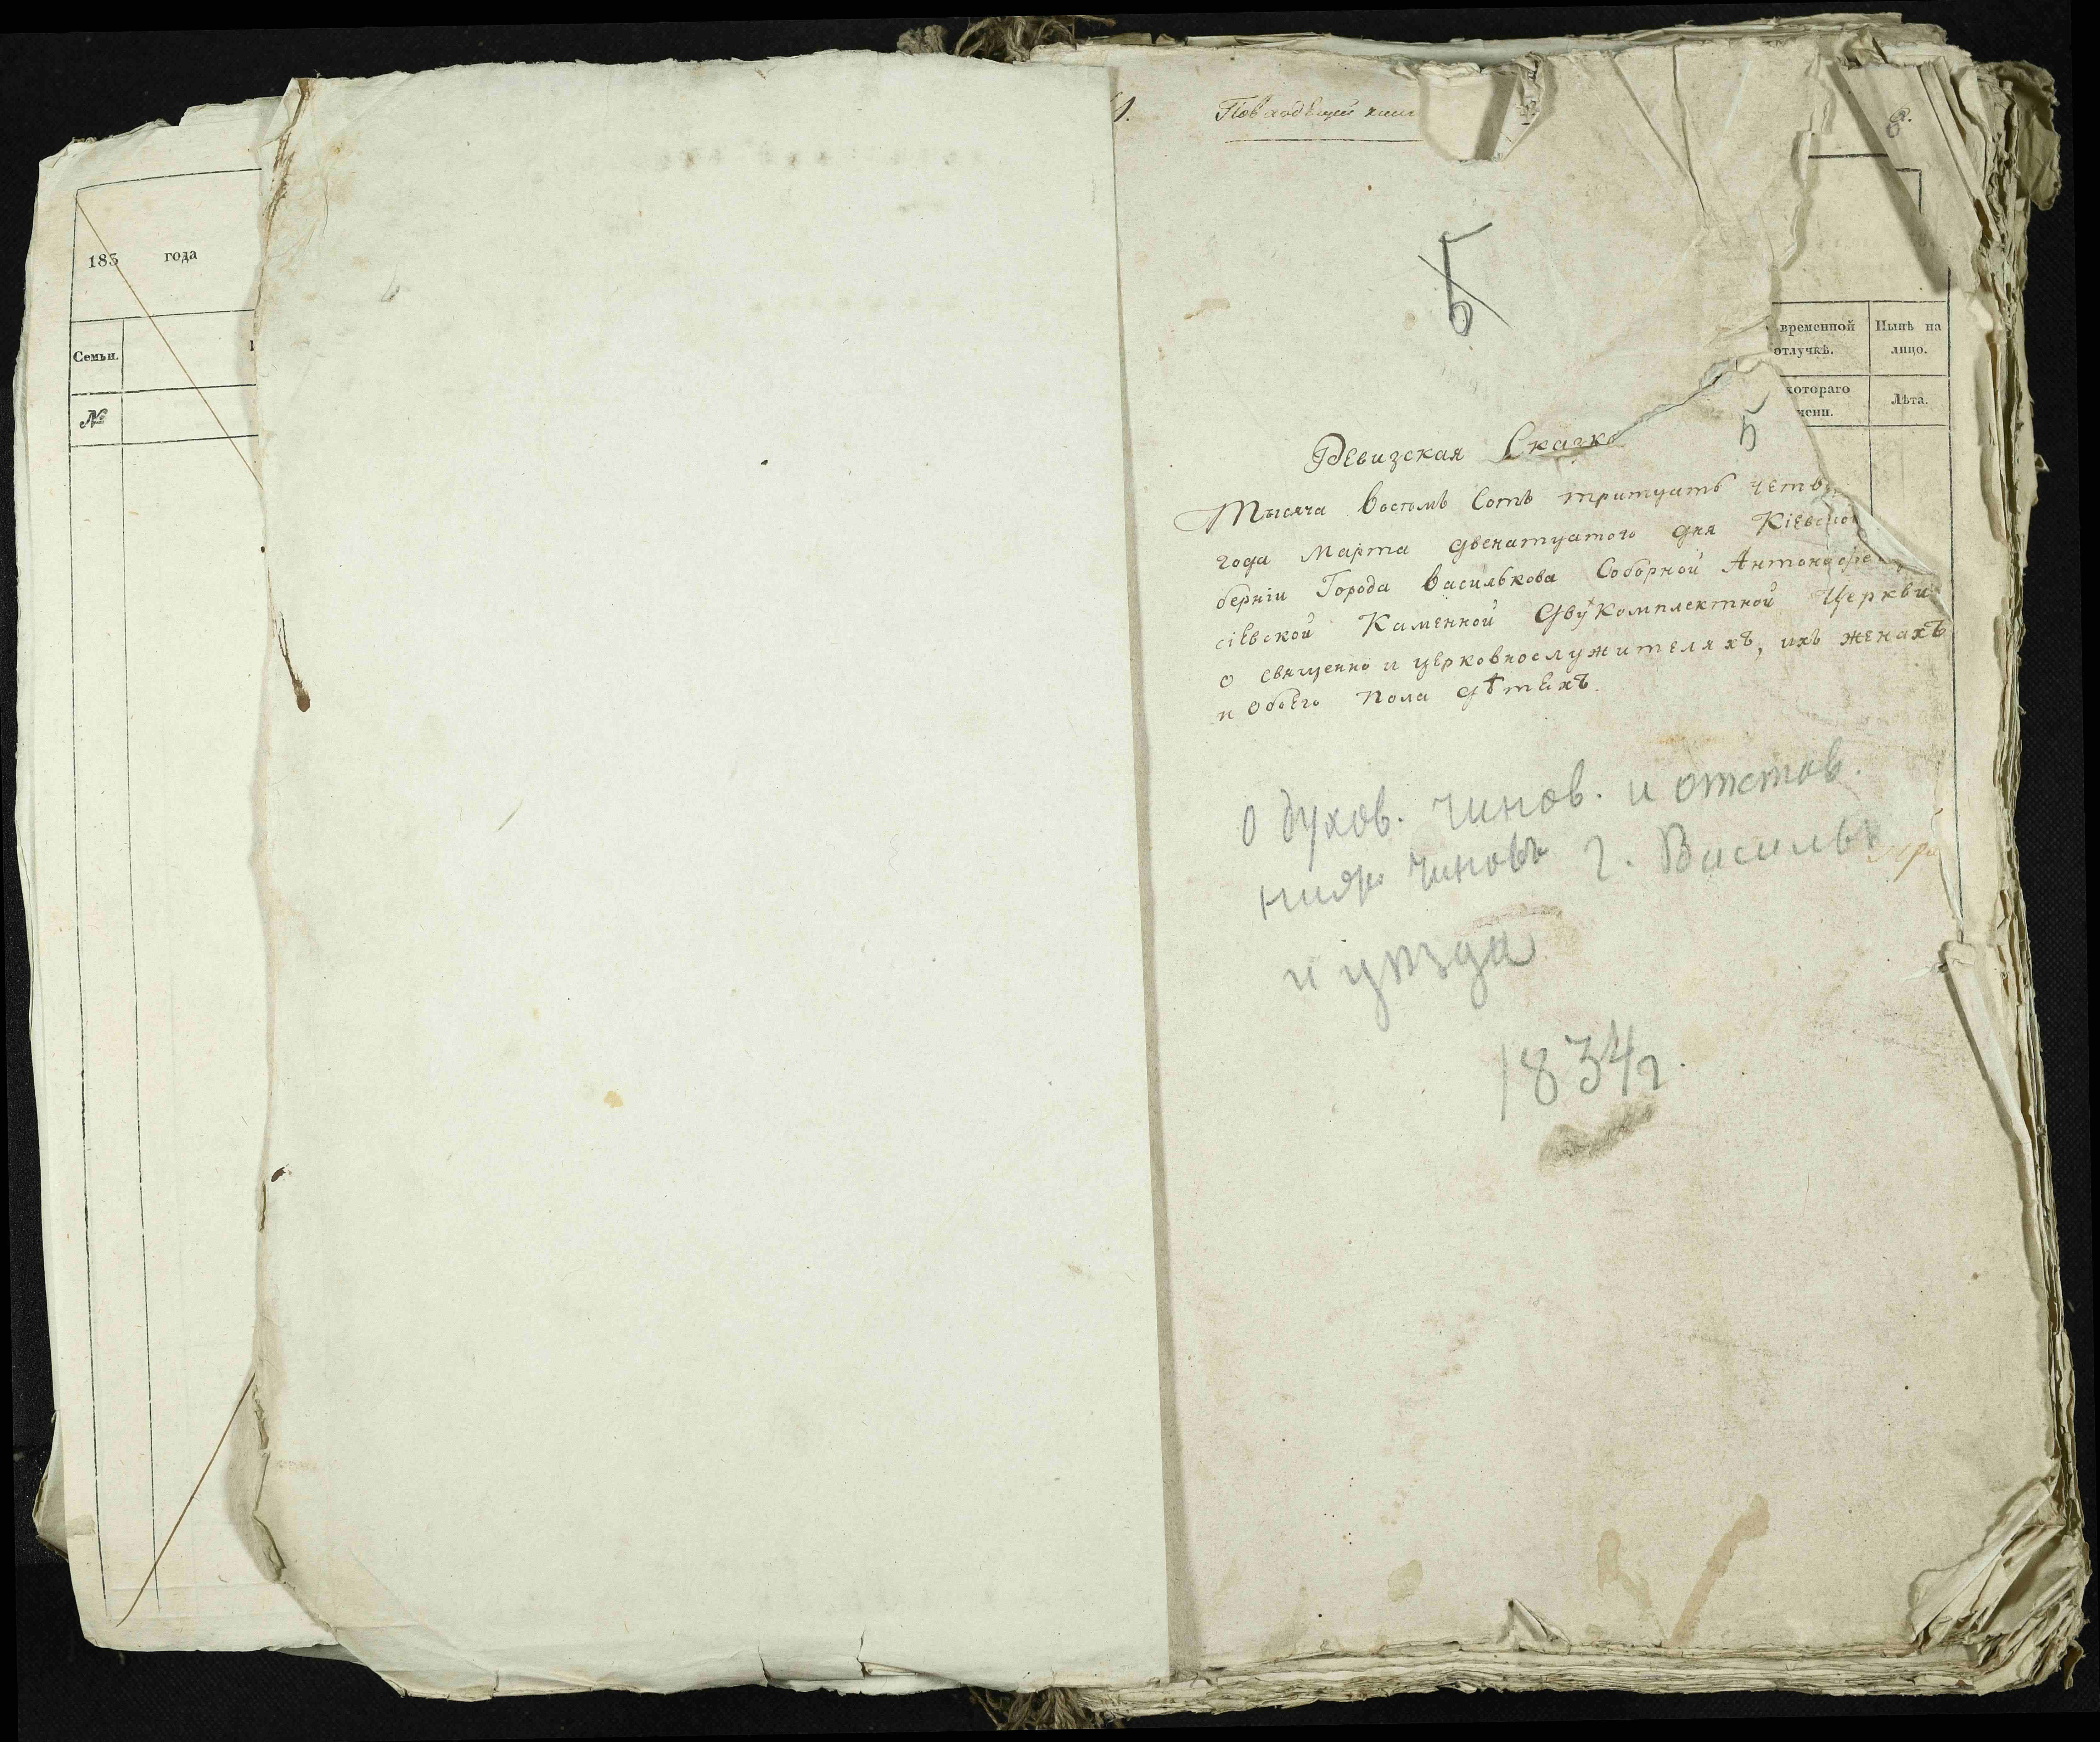 183 года
Семьи.
№
5
временной
отлучкѣ.
Нынѣ на
лицо.
котораго
Лѣта.
5
Ревизская Сказка
Тысяча восѣмъ сотъ тритцать четв
года Марта двенатцатого дня Кіевской
берніи Города Василькова Соборной Антоно
сіевской Каменной двукомплектной Церкви
о священно и церковнослужителяхъ, ихъ женахъ
и обоего пола дѣтехъ.
о духов. чинов. и отстав.
нижн чиновъ г. Васильк
и уѣзда
1834 г.